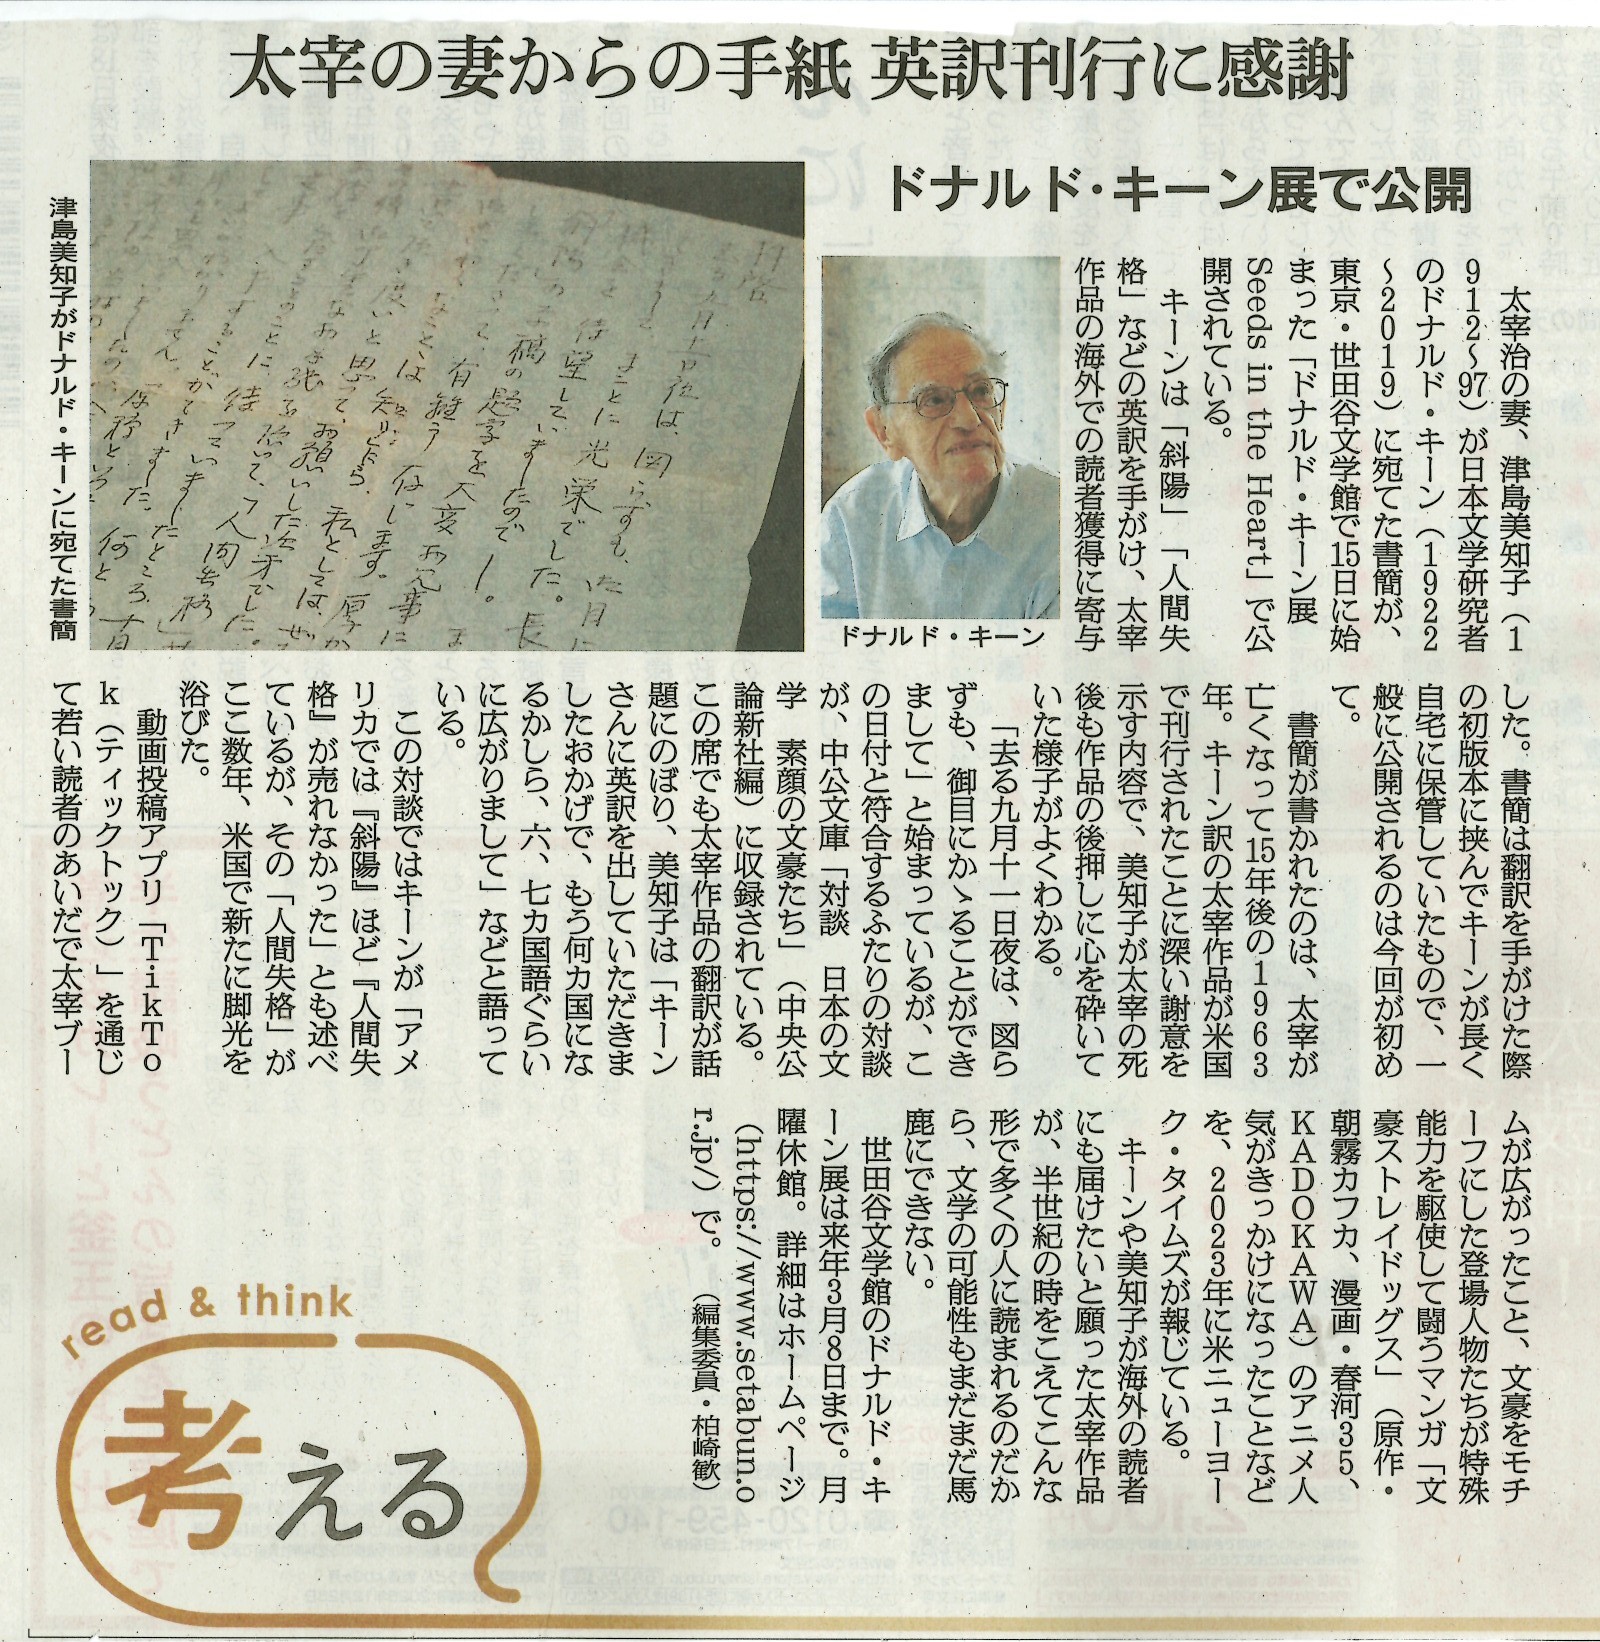 太宰の妻からの手紙 英訳刊行に感謝
ドナルド・キーン展で公開
津島美知子がドナルド・キーンに宛てた書簡
ドナルド・キーン
太宰治の妻、津島美知子(1
912〜97)が日本文学研究者
のドナルド・キーン(1922
〜2019)に宛てた書簡が、
東京・世田谷文学館で15日に始
まった「ドナルド・キーン展
Seeds in the Heart」で公
開されている。
キーンは「斜陽」「人間失
格」などの英訳を手がけ、太宰
作品の海外での読者獲得に寄与
した。書簡は翻訳を手がけた際
の初版本に挟んでキーンが長く
自宅に保管していたもので、一
般に公開されるのは今回が初め
て。
書簡が書かれたのは、太宰が
亡くなって15年後の1963
年。キーン訳の太宰作品が米国
で刊行されたことに深い謝意を
示す内容で、美知子が太宰の死
後も作品の後押しに心を砕いて
いた様子がよくわかる。
「去る九月十一日夜は、図ら
ずも、御目にかゝることができ
まして」と始まっているが、こ
の日付と符合するふたりの対談
が、中公文庫「対談 日本の文
学 素顔の文豪たち」(中央公
論新社編)に収録されている。
この席でも太宰作品の翻訳が話
題にのぼり、美知子は「キーン
さんに英訳を出していただきま
したおかげで、もう何カ国にな
るかしら、六、七カ国語ぐらい
に広がりまして」などと語って
いる。
この対談ではキーンが「アメ
リカでは『斜陽』ほど『人間失
格』が売れなかった」とも述べ
ているが、その「人間失格」が
ここ数年、米国で新たに脚光を
浴びた。
動画投稿アプリ「TikTo
k(ティックトック)」を通じ
て若い読者のあいだで太宰ブー
ムが広がったこと、文豪をモチ
ーフにした登場人物たちが特殊
能力を駆使して闘うマンガ「文
豪ストレイドッグス」(原作・
朝霧カフカ、漫画・春河35、
KADOKAWA)のアニメ人
気がきっかけになったことなど
を、2023年に米ニューヨー
ク・タイムズが報じている。
キーンや美知子が海外の読者
にも届けたいと願った太宰作品
が、半世紀の時をこえてこんな
形で多くの人に読まれるのだか
ら、文学の可能性もまだまだ馬
鹿にできない。
世田谷文学館のドナルド・キ
ーン展は来年3月8日まで。月
曜休館。詳細はホームページ
(https://www.setabun.o
r.jp/)で。 (編集委員・柏崎歓)
read & think
考える